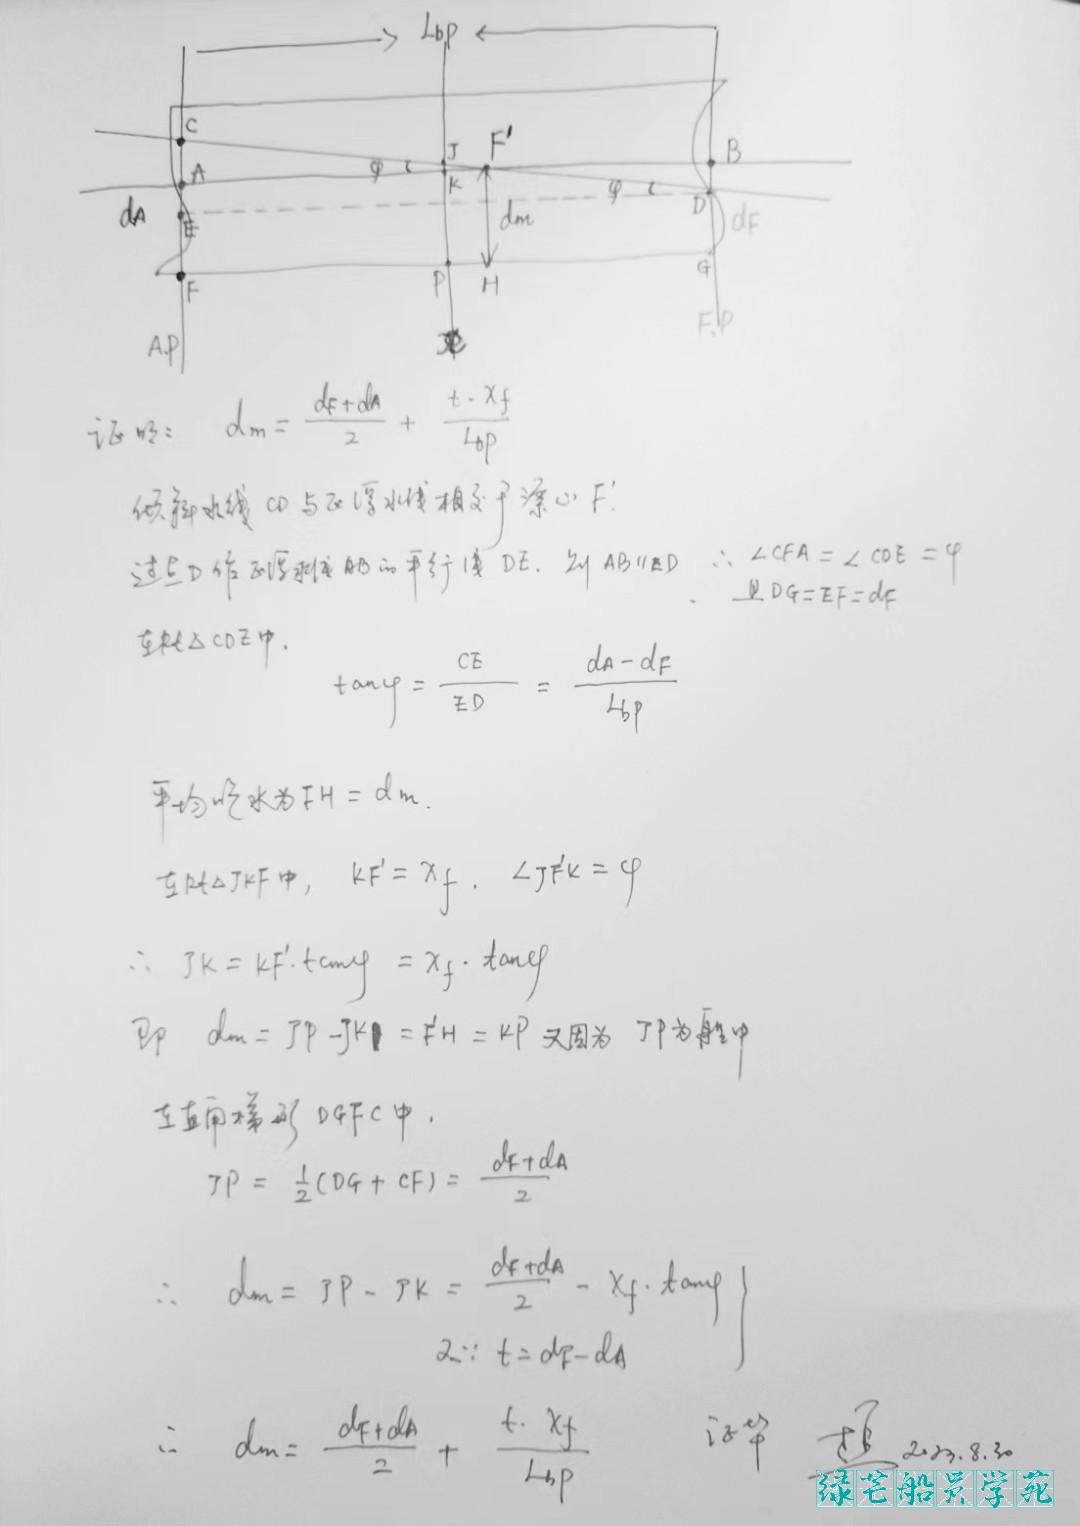 Lbp
C
J
F'
B
A
φ
K
φ
dA
E
dm
D
dF
F
P
H
G
A.P
F.P
证明: dm = (dF+dA)/2 + (t·xf)/Lbp
倾斜水线 CD 与正浮水线相交于漂心 F'.
过点D作正浮水线AB的平行线 DE. 则 AB∥ED ∴ ∠CFA = ∠CDE = φ
且DG=EF=dF
在Rt△CDE中.
tanφ = CE/ED = (dA-dF)/Lbp
平均吃水为FH = dm.
在Rt△JKF中, KF' = xf. ∠JF'K = φ
∴ JK = KF'·tanφ = xf·tanφ
即 dm = JP - JK = F'H = KP 又因为 JP为船中
在直角梯形 DGFC中.
JP = 1/2(DG+CF) = (dF+dA)/2
∴ dm = JP - JK = (dF+dA)/2 - xf·tanφ
又∵ t = dF-dA
∴ dm = (dF+dA)/2 + (t·xf)/Lbp 证毕
2023.8.30
绿芒船员学苑